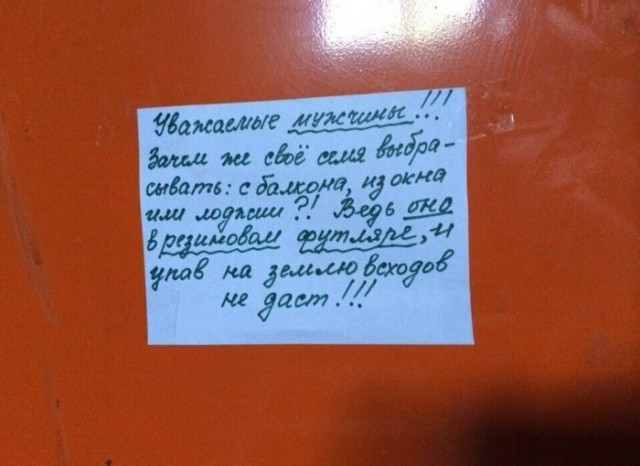 Уважаемые мужчины!!!
Зачем же своё семя выбра-
сывать: с балкона, из окна
или лоджии?! Ведь оно
в резиновом футляре, и
упав на землю всходов
не даст!!!